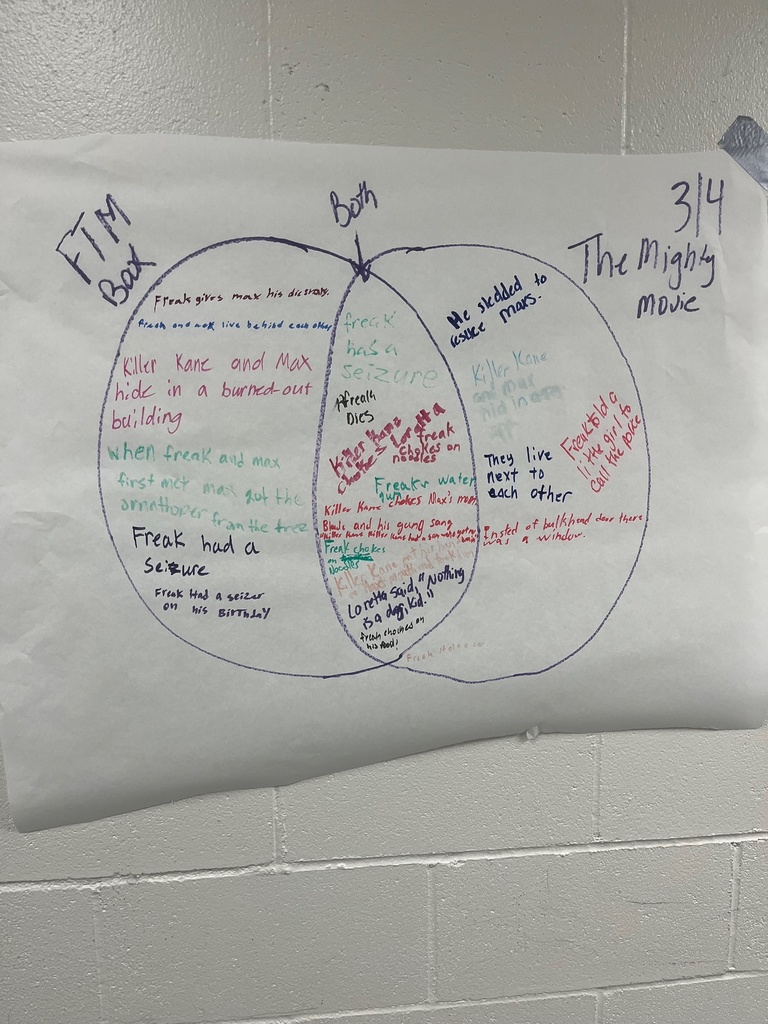 FTM
Box
Both
3/4
The Mighty
movie
Freak gives max his
Freak and max live behind each other
Killer Kane and Max
hide in a burned-out
building
when freak and max
first met max got the
from the tree
Freak had a
Seizure
Freak Had a seizer
on his BirTHDAY
freak
has a
seizure
Freak
Dies
Killer Kane
chokes Loretta
freak
chokes on
noodles
Freaks water
gun
Killer Kane chokes Max's mom
Blade and his gang sang
Killer Kane Killer Kane had a son who got no
Freak chokes
on
Noodles
Killer Kane
Loretta said, "Nothing
is a dog, kid."
freak chockes on
his food!
He sledded to
rescue maxs.
Killer Kane
and max
hid in
They live
next to
each other
Freak told a
little girl to
call the police
Insted of bulkhead door there
was a window.
Freak